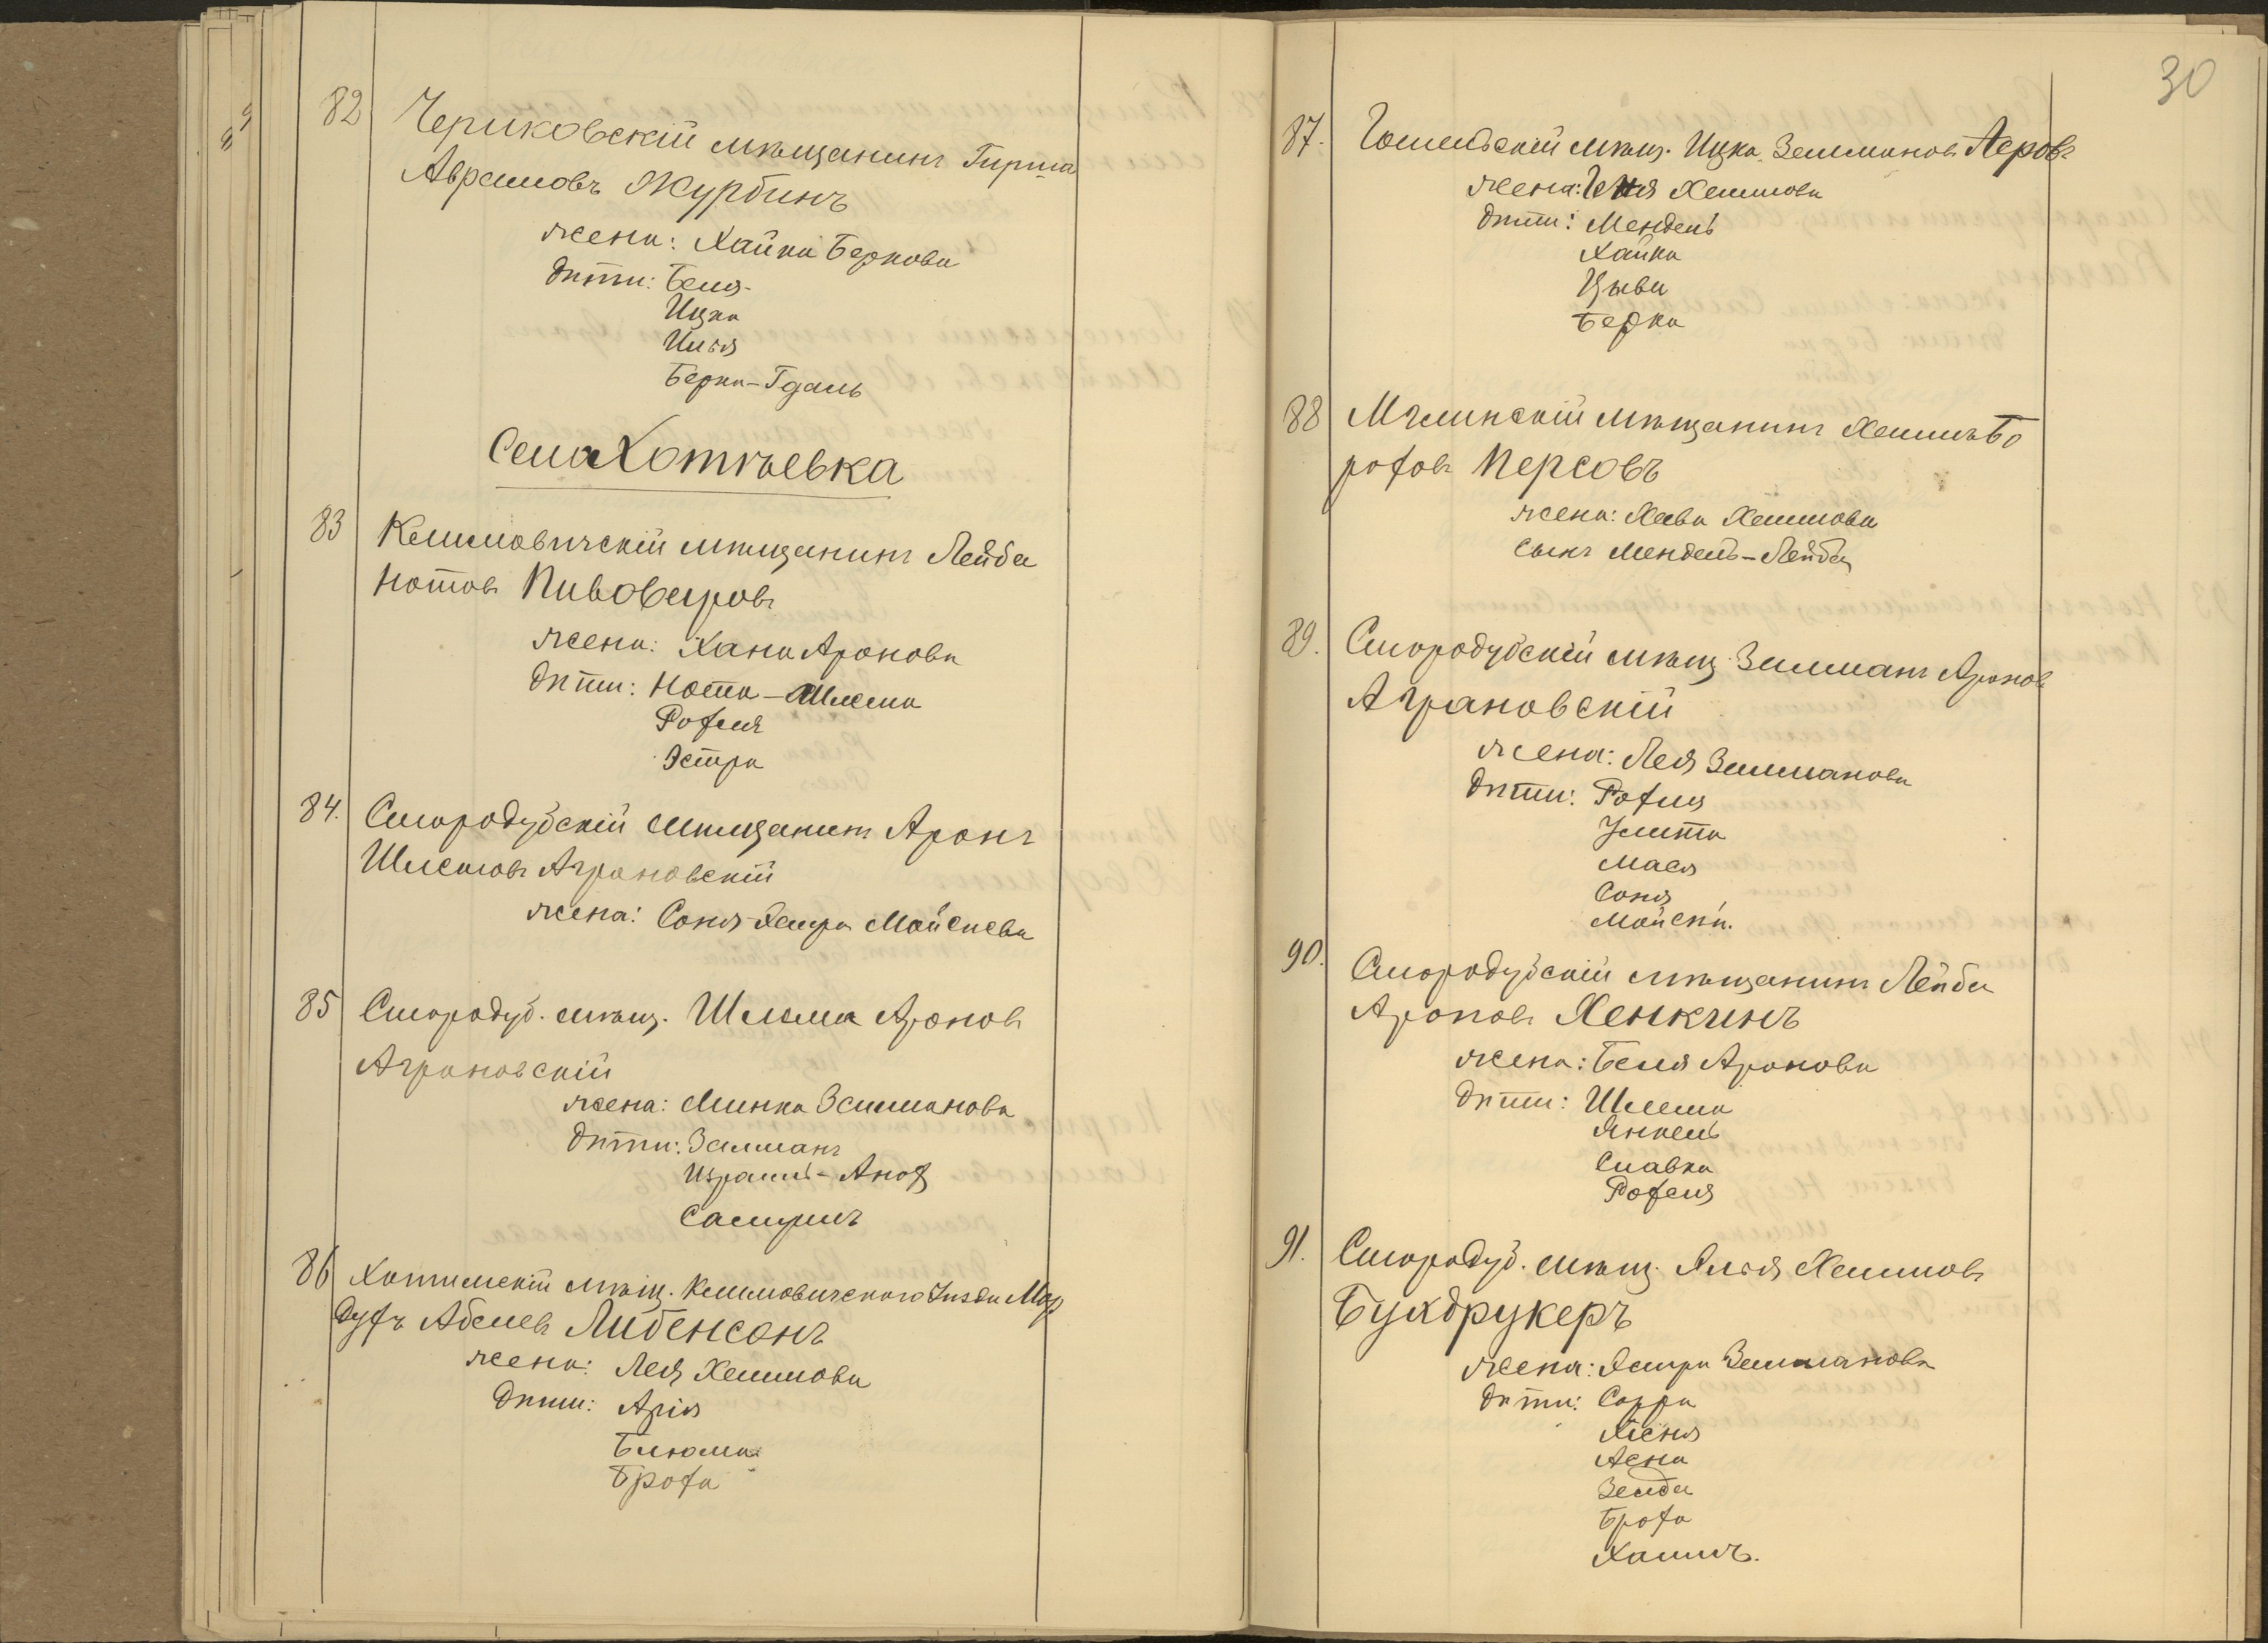 82 Чериковскій мѣщанинъ Гирша
Аврамовъ Журбинъ
жена: Хайка Беркова
дѣти: Беля
Ицка
Илья
Берка-Гдаль
Села Хотѣевка
83 Климовичскій мѣщанинъ Лейба
Нотовъ Пивоваровъ
жена: Хана Аронова
дѣти: Нота-Шлема
Рохля
Эстра
84. Стародубскій мѣщанинъ Аронъ
Шлемовъ Аграновскій
жена: Соня-Хстра Мойсеева
85 Стародуб. мѣщ. Шлема Ароновъ
Аграновскій
жена: Минка Залманова
дѣти: Залманъ
Израиль-Аноχ
Самуилъ
86 Хотимскій мѣщ. Климовичскаго уѣзда Мор
духъ Абелевъ Либенсонъ
жена: Лея Хаимова
дѣти: Арія
Блюма
Броха
30
87. Гомельскій мѣщ. Ицка Залмановъ Леровъ
жена: Геня Хаимова
дѣти: Мендель
Хайка
Цыва
Берка
88 Мглинскій мѣщанинъ Хаимъ Бо
роховъ Персовъ
жена: Хава Хаимова
сынъ Мендель-Лейба
89. Стародубскій мѣщ. Залманъ Ароновъ
Аграновскій
жена: Лея Залманова
дѣти: Рохля
Улита
Мася
Соня
Мойсей.
90. Стародубскій мѣщанинъ Лейба
Ароновъ Хенкинъ
жена: Беля Аронова
дѣти: Шлема
Янкель
Славка
Рохля
91. Стародуб. мѣщ. Илья Хаимовъ
Бухдрукеръ
жена: Эстра Залманова
дѣти: Сарра
Хеня
Асна
Зелда
Броха
Хаимъ.